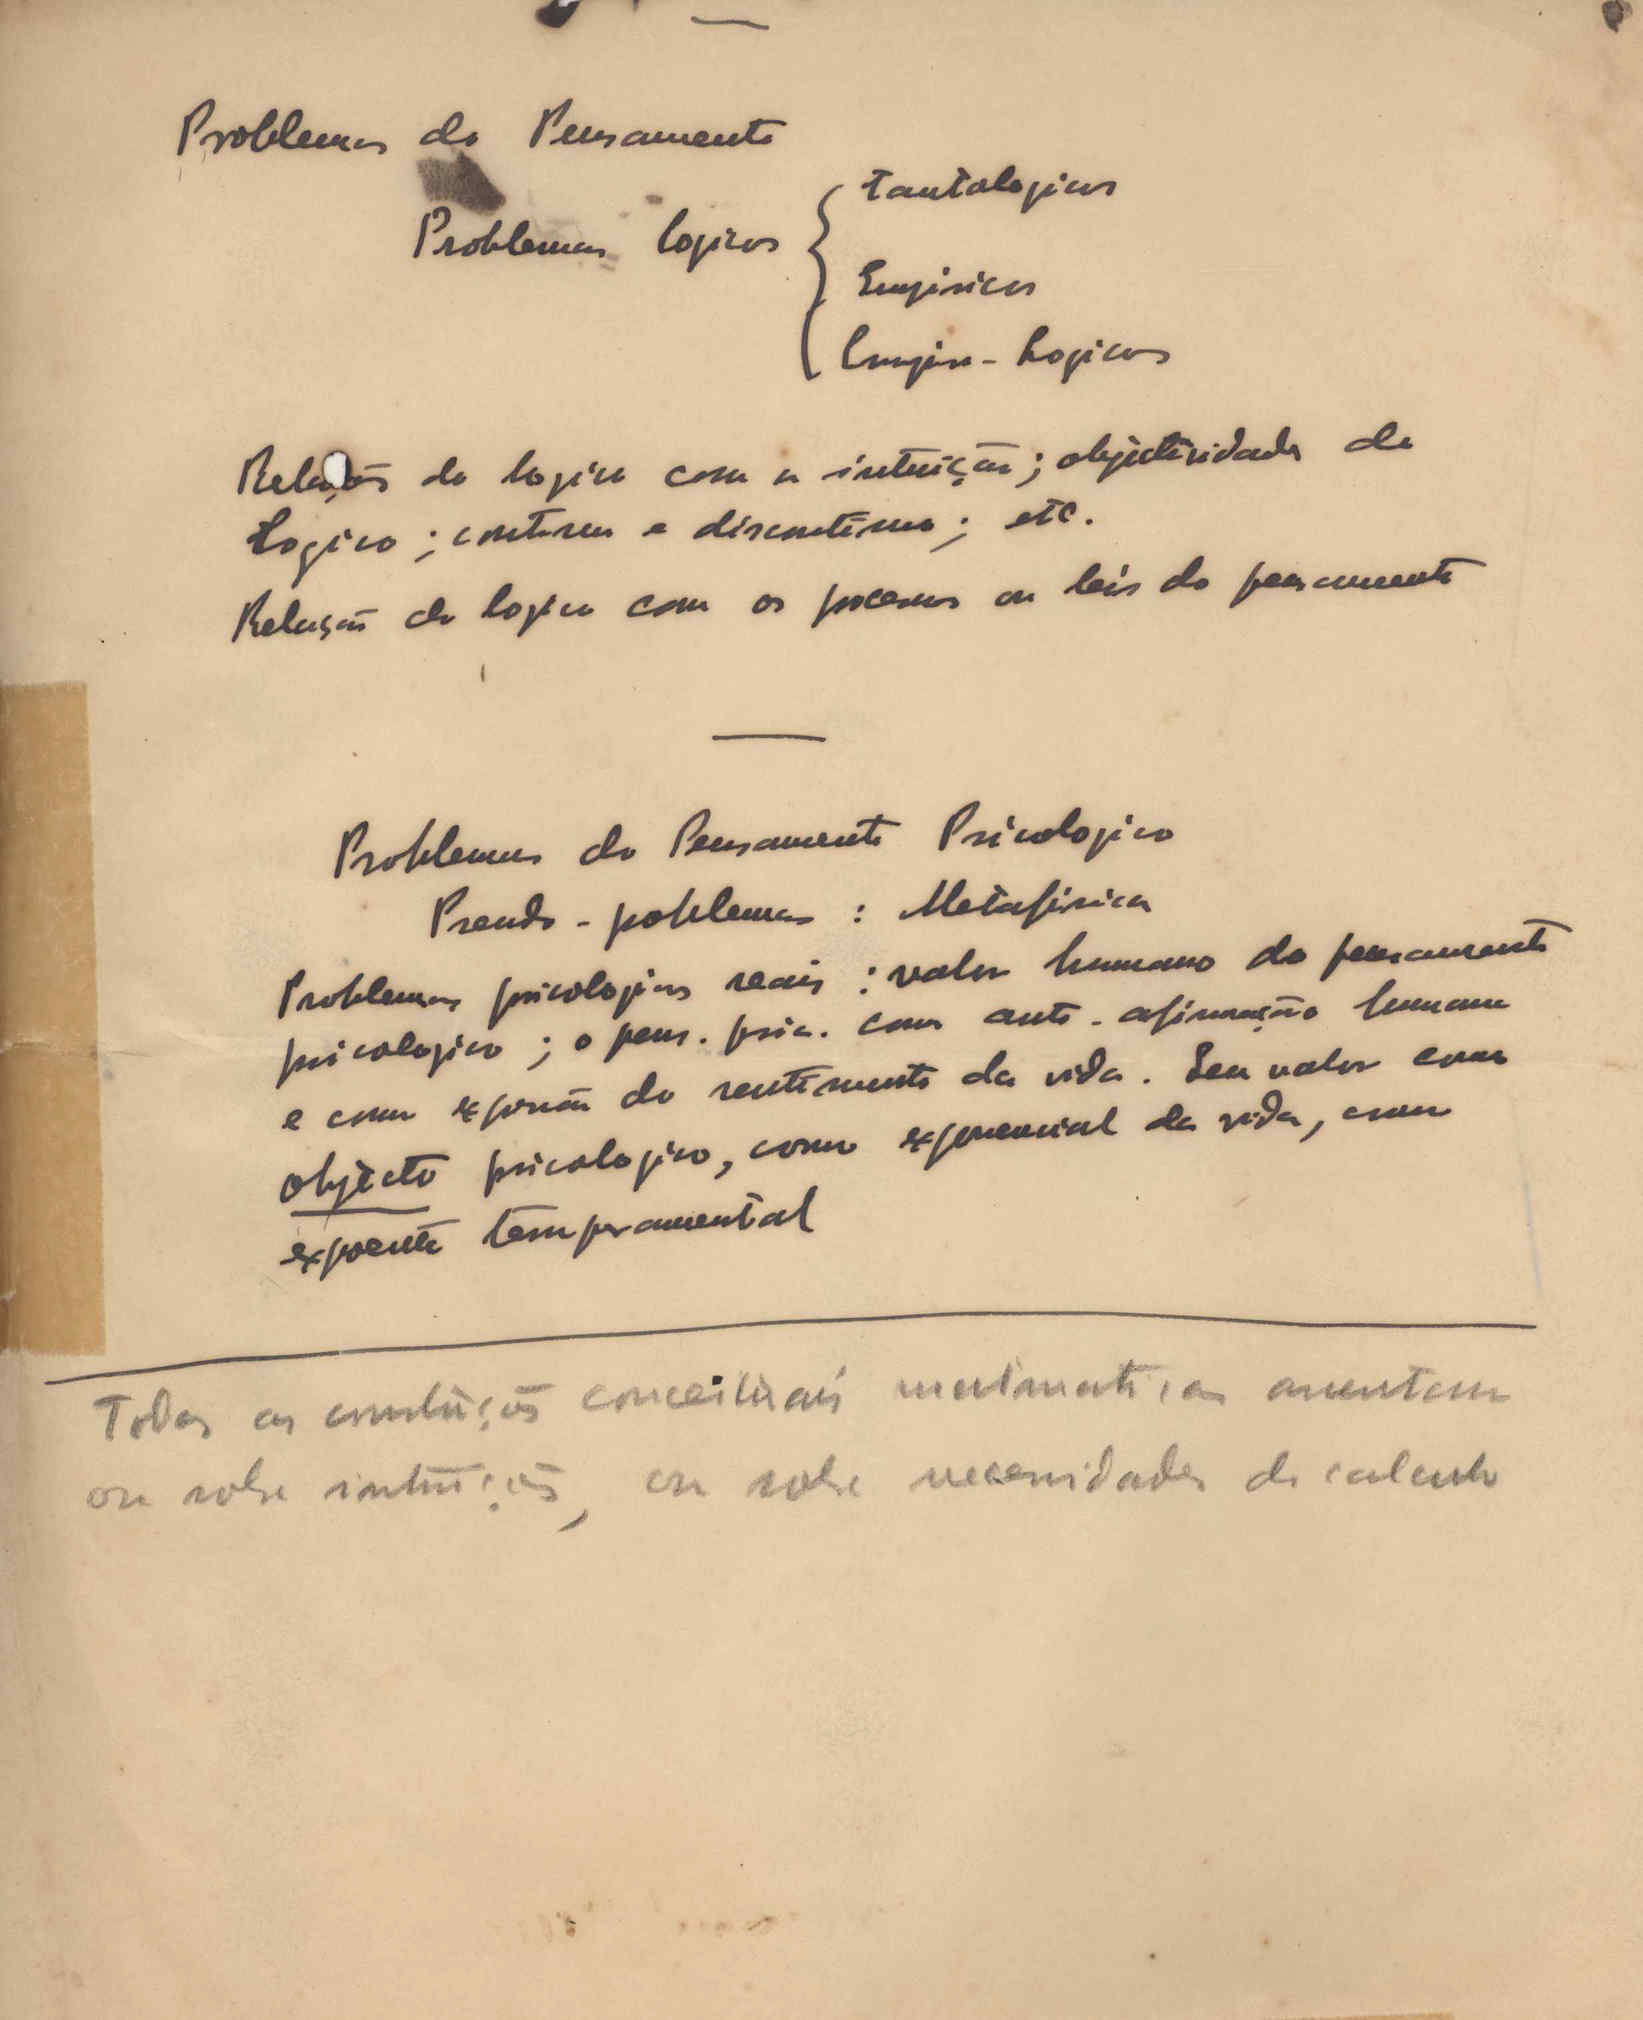 Problemas do Pensamento
Tautologicos
Problemas logicos
Empiricos
Empiro-Logicos
Relação do logico com a intuição; objectividade do
Logico; contínuo e discontínuo; etc.
Relação do logico com os processos ou leis do pensamento
Problemas do Pensamento Psicologico
Pseudo-problemas: Metafisica
Problemas psicologicos reais: valor humano do pensamento
psicologico; o pens. psic. como auto-afirmação humana
e como expressão do sentimento da vida. Seu valor como
objecto psicologico, como exponencial da vida, como
expoente temperamental
Todas as construções conceituais matematicas assentam
ou sobre intuições, ou sobre necessidades de calculo